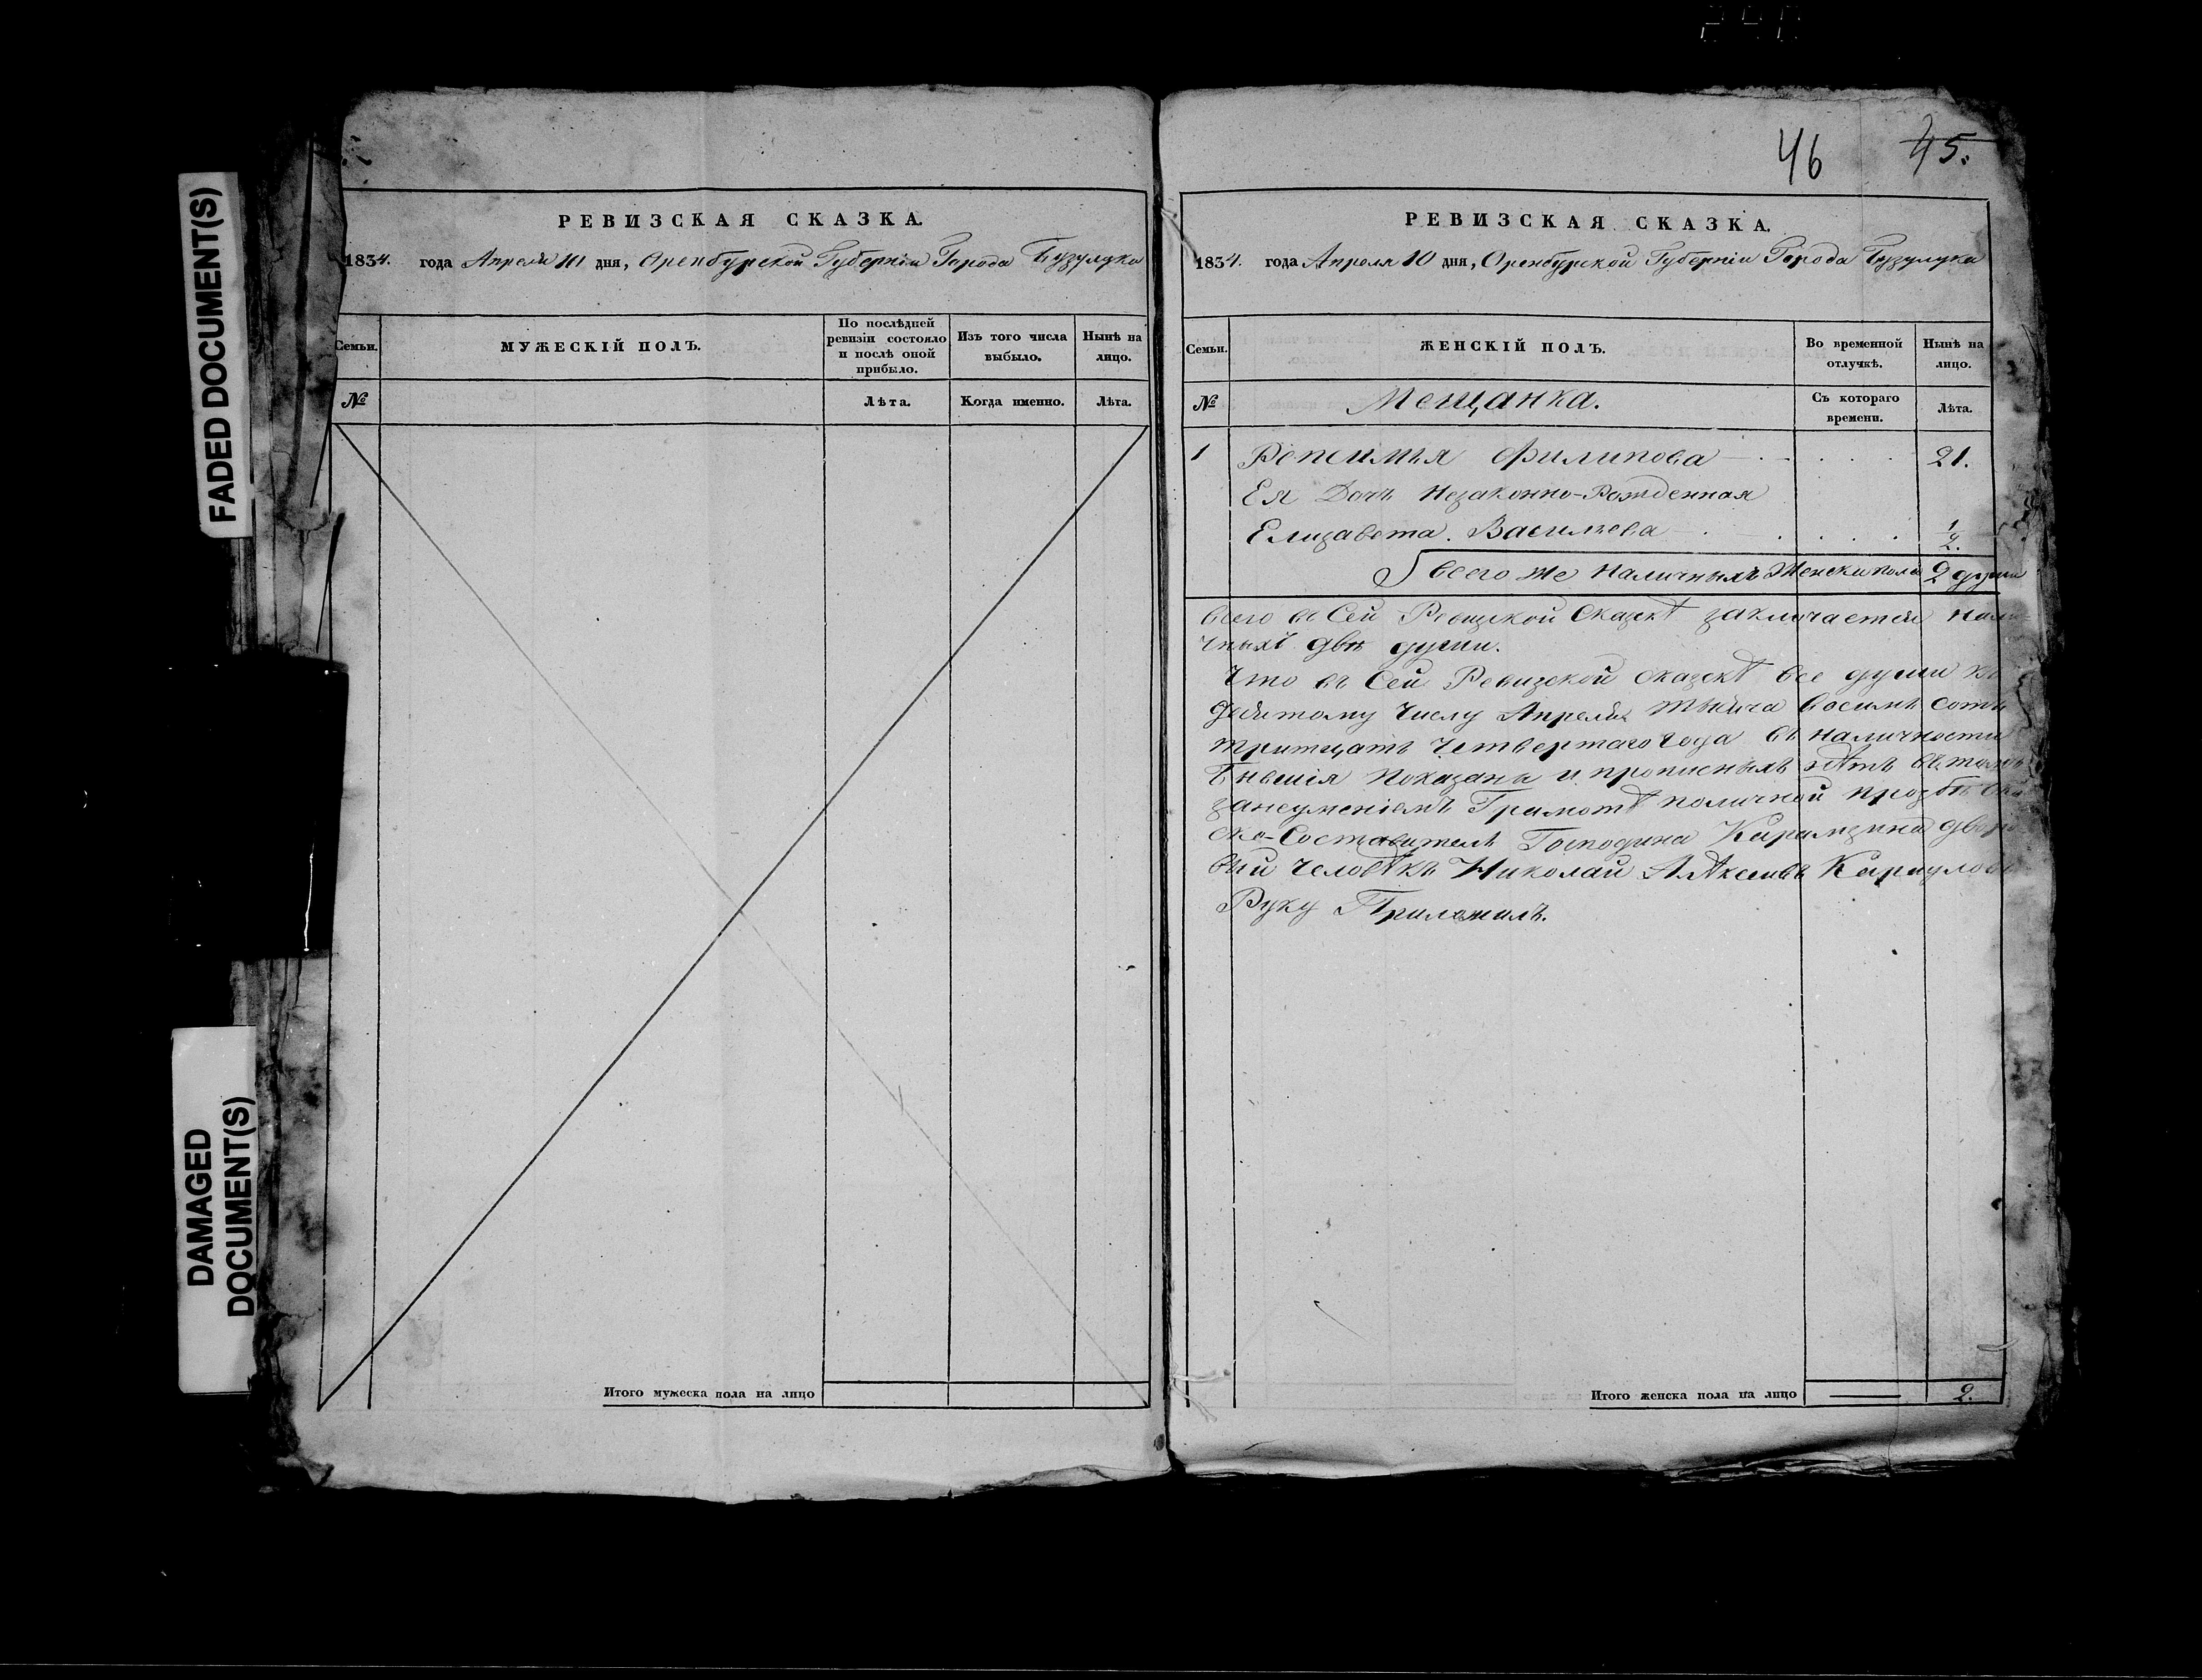 46 45.
FADED DOCUMENT(S)
DAMAGED DOCUMENT(S)
РЕВИЗСКАЯ СКАЗКА.
1834. года Апреля 10 дня, Оренбурской Губернiи Города Бузулука
Семьи.
МУЖЕСКIЙ ПОЛЪ.
По послѣдней ревизiи состояло и послѣ оной прибыло.
Изъ того числа выбыло.
Нынѣ на лицо.
№
Лѣта.
Когда именно.
Лѣта.
Итого мужеска пола на лицо
РЕВИЗСКАЯ СКАЗКА.
1834. года Апреля 10 дня, Оренбурской Губернiи Города Бузулука
Семьи.
ЖЕНСКIЙ ПОЛЪ.
Во временной отлучкѣ.
Нынѣ на лицо.
№
Мещанка.
Съ котораго времени.
Лѣта.
1 Репсимья Филипова 21.
Ея Дочь Незаконно-Рожденная
Елизавета. Васильева 1/2.
всего же наличныхъ Женска пола 2 души
всего въ Сей Ревизкой Сказкѣ заключается нали-
чныхъ двѣ души.
Что въ Сей Ревизской сказкѣ все души
Числу Апреля Тысяча восимь сотъ
тритцать Четвертаго года въ наличности
Бывшiя показаны и прописныхъ нѣтъ
занеумѣнiемъ Грамотѣ поличной прозбѣ
Составитель Господина Карамзина
вый человѣкъ Николай Алѣксеивъ
Руку Приложилъ.
Итого женска пола на лицо 2.